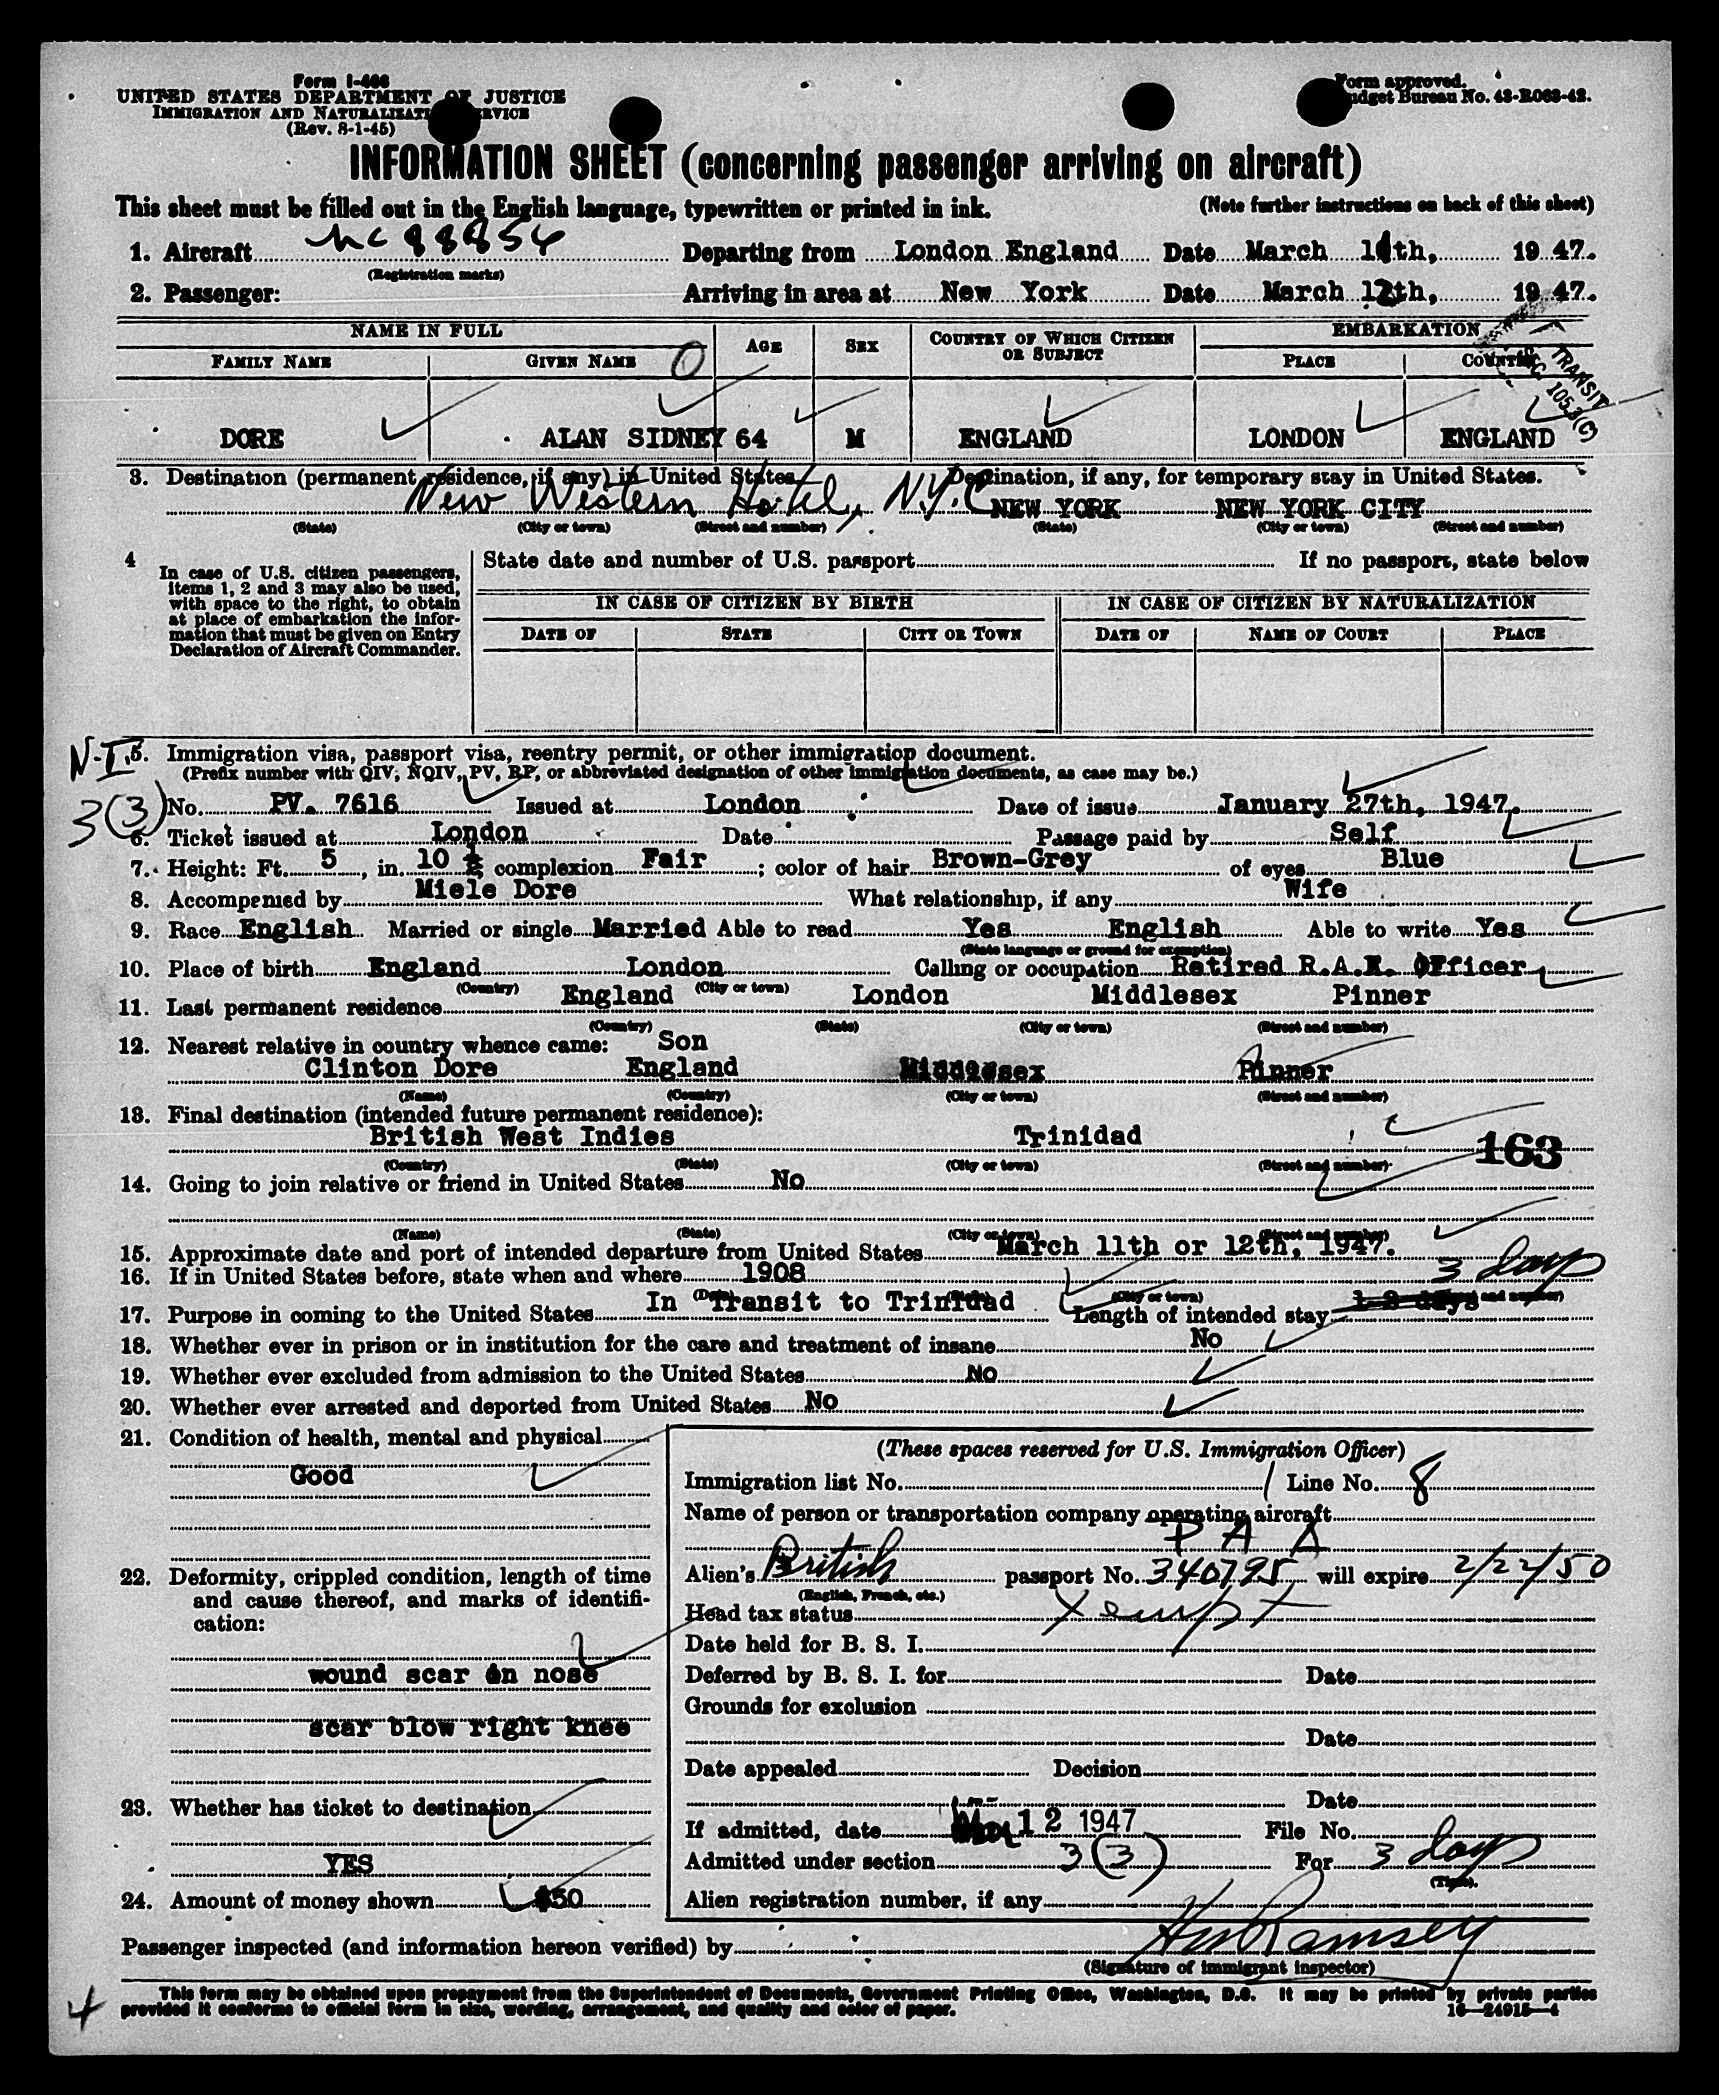 Form I-466
UNITED STATES DEPARTMENT OF JUSTICE
IMMIGRATION AND NATURALIZATION SERVICE
(Rev. 8-1-45)
Form approved.
Budget Bureau No. 43-R063-42.
INFORMATION SHEET (concerning passenger arriving on aircraft)
This sheet must be filled out in the English language, typewritten or printed in ink. (Note further instructions on back of this sheet)
1. Aircraft NC 88856 Departing from London England Date March 11th, 1947.
(Registration marks)
2. Passenger: Arriving in area at New York Date March 12th, 1947.
NAME IN FULL AGE SEX COUNTRY OF WHICH CITIZEN OR SUBJECT EMBARKATION
FAMILY NAME GIVEN NAME O PLACE COUNTRY
TRANSIT
SEC. 105.3(C)
DORE ALAN SIDNEY 64 M ENGLAND LONDON ENGLAND
3. Destination (permanent residence, if any) in United States. Destination, if any, for temporary stay in United States.
New Western Hotel, N.Y.C NEW YORK NEW YORK CITY
(State) (City or town) (Street and number) (State) (City or town) (Street and number)
4 In case of U.S. citizen passengers, items 1, 2 and 3 may also be used, with space to the right, to obtain at place of embarkation the information that must be given on Entry Declaration of Aircraft Commander.
State date and number of U.S. passport If no passport, state below
IN CASE OF CITIZEN BY BIRTH IN CASE OF CITIZEN BY NATURALIZATION
DATE OF STATE CITY OR TOWN DATE OF NAME OF COURT PLACE
N-I 5. Immigration visa, passport visa, reentry permit, or other immigration document.
(Prefix number with QIV, NQIV, PV, RP, or abbreviated designation of other immigration documents, as case may be.)
3(3) No. PV. 7616 Issued at London Date of issue January 27th, 1947.
6. Ticket issued at London Date Passage paid by Self
7. Height: Ft. 5, in. 10 ½; complexion Fair; color of hair Brown-Grey of eyes Blue
8. Accompanied by Miele Dore What relationship, if any Wife
9. Race English Married or single Married Able to read Yes English Able to write Yes
(State language or ground for exemption)
10. Place of birth England London Calling or occupation Retired R.A.F. Officer
(Country) (City or town)
11. Last permanent residence England London Middlesex Pinner
(Country) (State) (City or town) (Street and number)
12. Nearest relative in country whence came: Son
Clinton Dore England Middlesex Pinner
(Name) (Country) (City or town) (Street and number)
13. Final destination (intended future permanent residence):
British West Indies Trinidad 163
(Country) (State) (City or town) (Street and number)
14. Going to join relative or friend in United States No
(Name) (State) (City or town) (Street and number)
15. Approximate date and port of intended departure from United States March 11th or 12th, 1947.
16. If in United States before, state when and where 1908 3 days
(Date) (State) (City or town) (Street and number)
17. Purpose in coming to the United States In Transit to Trinidad Length of intended stay 1 2 days
18. Whether ever in prison or in institution for the care and treatment of insane No
19. Whether ever excluded from admission to the United States No
20. Whether ever arrested and deported from United States No
21. Condition of health, mental and physical
Good
22. Deformity, crippled condition, length of time and cause thereof, and marks of identification:
wound scar on nose
scar blow right knee
23. Whether has ticket to destination
YES
24. Amount of money shown $50
(These spaces reserved for U.S. Immigration Officer)
Immigration list No. 1 Line No. 8
Name of person or transportation company operating aircraft
P A A
Alien's British passport No. 340795 will expire 2/22/50
(English, French, etc.)
Head tax status Xempt
Date held for B. S. I.
Deferred by B. S. I. for Date
Grounds for exclusion
Date
Date appealed Decision
Date
If admitted, date Mar 12 1947 File No.
Admitted under section 3(3) For 3 days
(Time).
Alien registration number, if any
Passenger inspected (and information hereon verified) by Ramsey
(Signature of immigrant inspector)
4 This form may be obtained upon prepayment from the Superintendent of Documents, Government Printing Office, Washington, D.C. It may be printed by private parties
provided it conforms to official form in size, wording, arrangement, and quality and color of paper. 16—24915-4